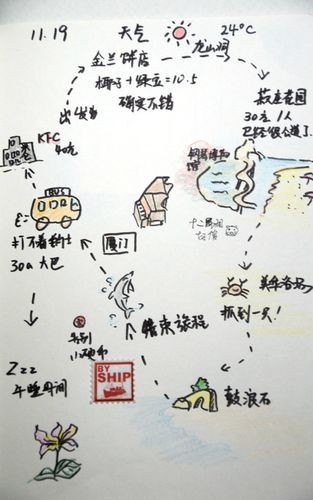 11.19
天气
24°C
龙山洞
金兰饼店
椰子+绿豆=10.5
确实不错
出发
菽庄花园
30元 1人
已经很公道了
KFC
40元
钢琴博物馆
BUS
打不着的士
30a大巴
厦门
十二属相
美华浴场
抓到一只!
结束旅程
小硬币
Zzz
午睡时间
BY
SHIP
鼓浪石